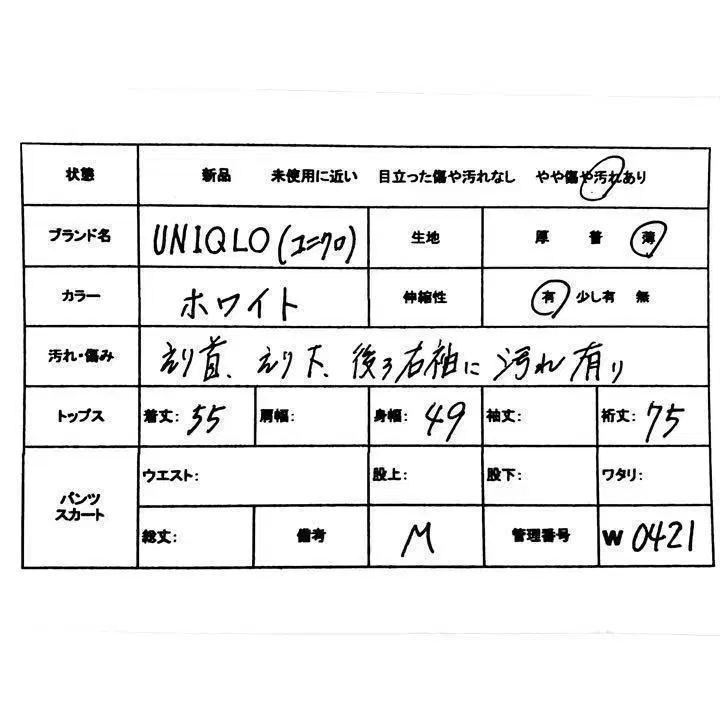 状態 新品 未使用に近い 目立った傷や汚れなし やや傷や汚れあり
ブランド名 UNIQLO(ユニクロ) 生地 厚 普 薄
カラー ホワイト 伸縮性 有 少し有 無
汚れ・傷み えり首、えり下、後ろ右袖に汚れ有り
トップス 着丈: 55 肩幅: 身幅: 49 袖丈: 裄丈: 75
パンツ
スカート
ウエスト: 股上: 股下: ワタリ:
総丈: 備考 M 管理番号 W 0421